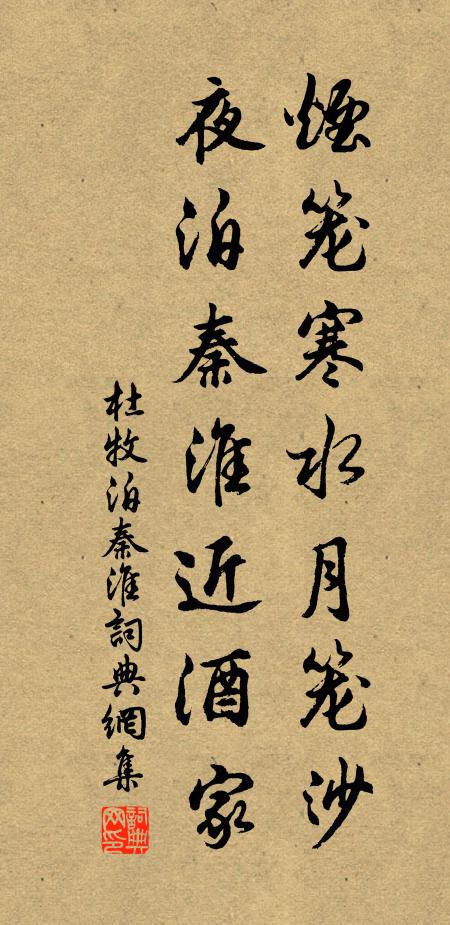 煙笼寒水月笼沙
夜泊秦淮近酒家
杜牧泊秦淮詞典網集
詞典
网印